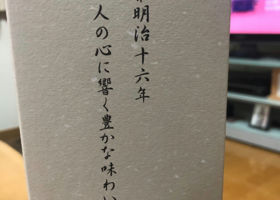 明治十六年
人の心に響く豊かな味わい